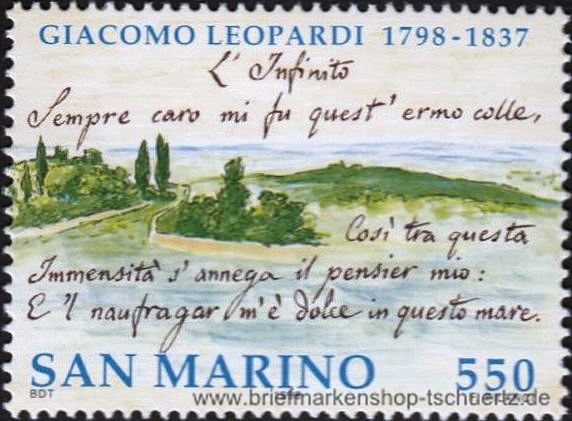 GIACOMO LEOPARDI 1798-1837
L'Infinito
Sempre caro mi fu quest'ermo colle,
Così tra questa
Immensità s'annega il pensier mio:
E 'l naufragar m'è dolce in questo mare.
SAN MARINO 550
BDT
www.briefmarkenshop-tschuertz.de